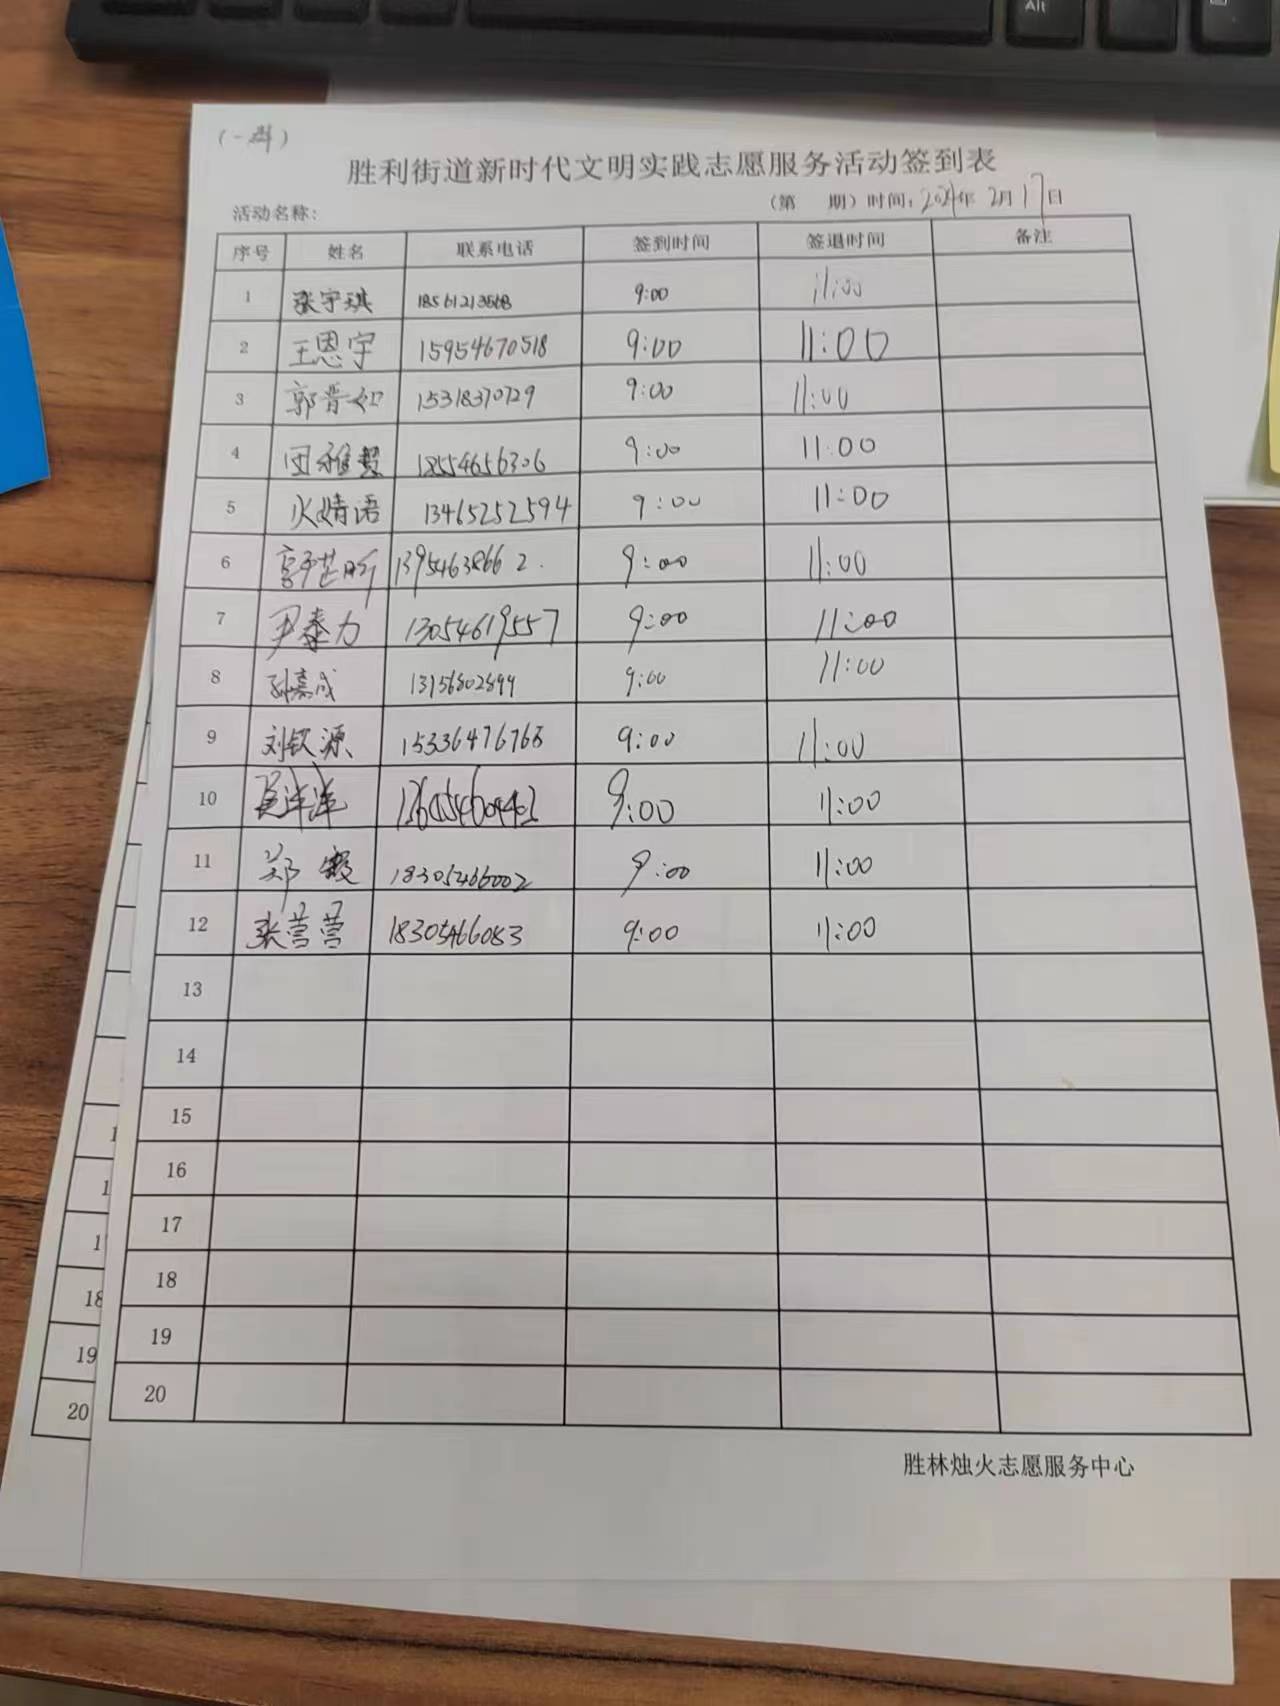 Alt
胜利街道新时代文明实践志愿服务活动签到表
活动名称： （第 期）时间： 年 2月17日
序号 姓名 联系电话 签到时间 签退时间 备注
1 张宇琪 18561213568 9:00 11:00
2 王恩宇 15954670518 9:00 11:00
3 郭晋如 15318370729 9:00 11:00
4 田雅慧 18554656306 9:00 11:00
5 婧语 13465252594 9:00 11:00
6 13954638662 9:00 11:00
7 尹泰力 13054619557 9:00 11:00
8 孙嘉成 13156802899 9:00 11:00
9 刘钦源 15336476768 9:00 11:00
10 洋洋 9:00 11:00
11 郑霞 18305466002 9:00 11:00
12 张营营 18305466083 9:00 11:00
13
14
15
16
17
18
19
20
胜林烛火志愿服务中心
18
19
20